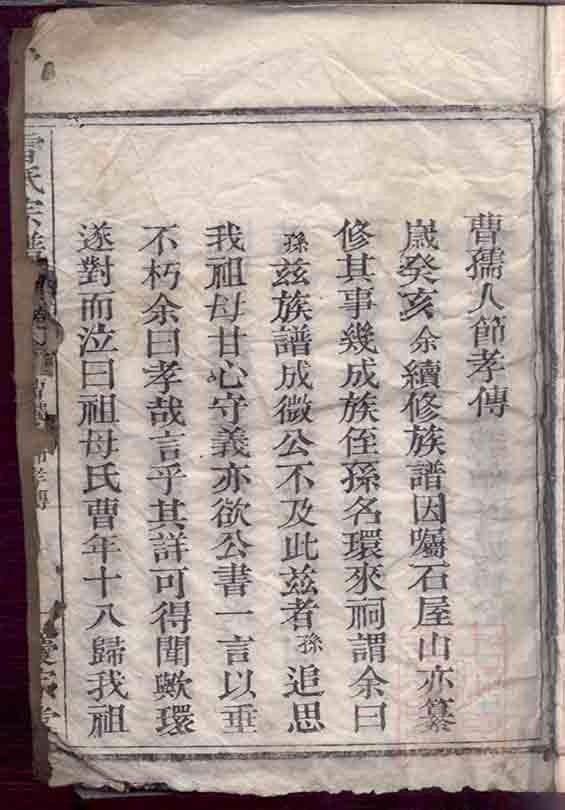 曹孺人節孝傳
歲癸亥余續修族譜因囑石屋山亦纂
修其事幾成族侄孫名環來祠謂余曰
孫茲族譜成微公不及此茲者孫追思
我祖母甘心守義亦欲公書一言以垂
不朽余曰孝哉言乎其詳可得聞歟環
遂對而泣曰祖母氏曹年十八歸我祖
氏宗譜
節孝傳